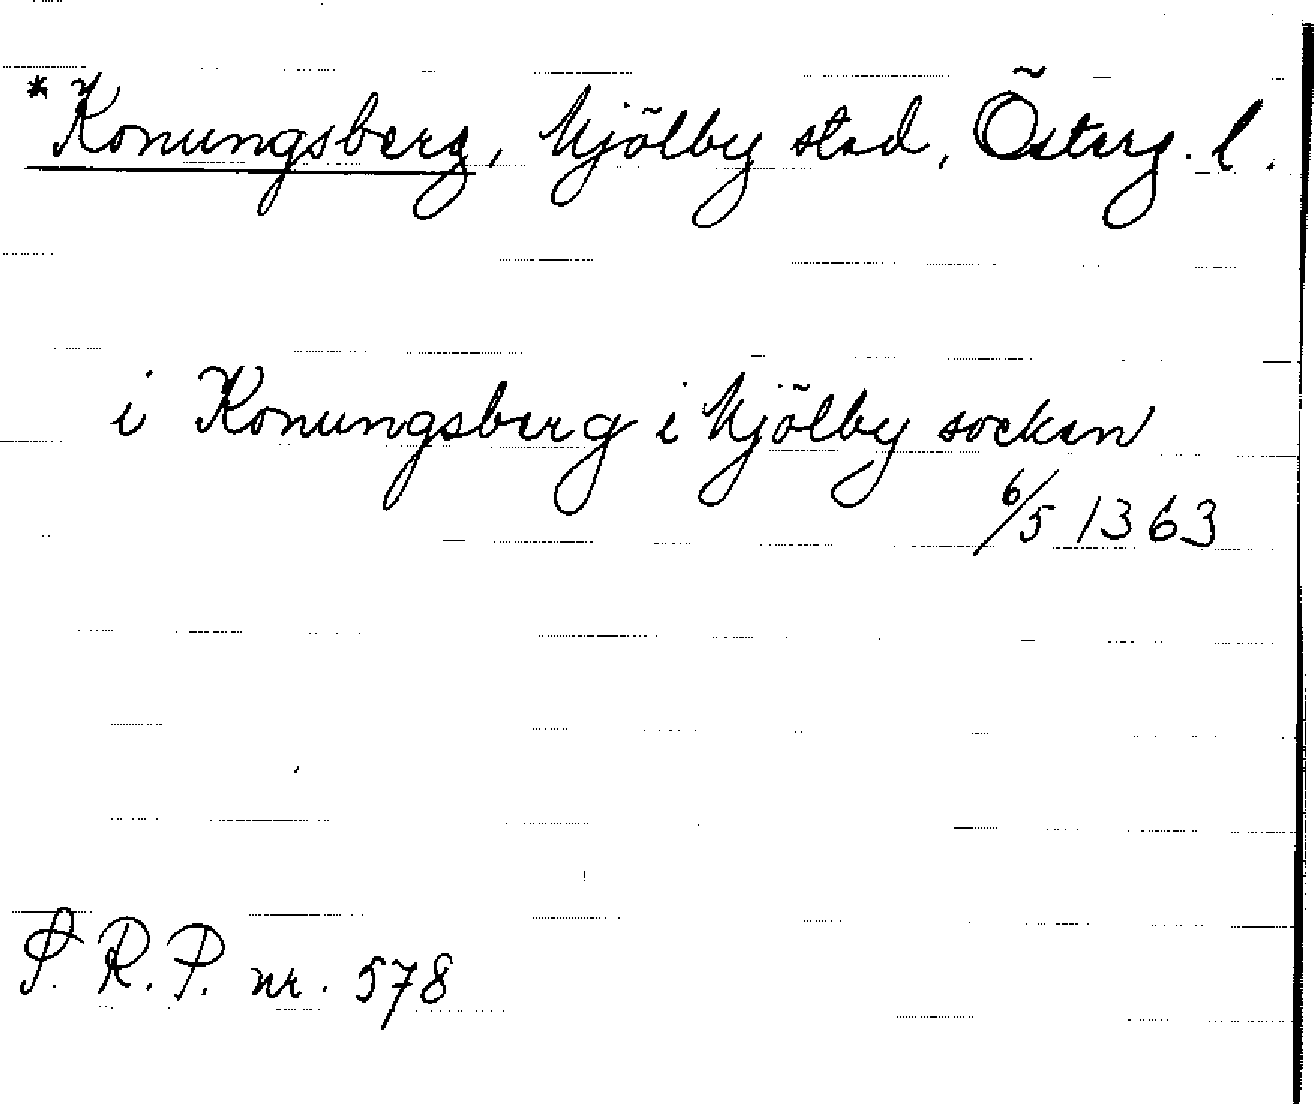 *Konungsberg, Mjölby stad, Österg. l.
i Konungsberg i Mjölby socken
6/5 1363
S. R. P. nr. 578